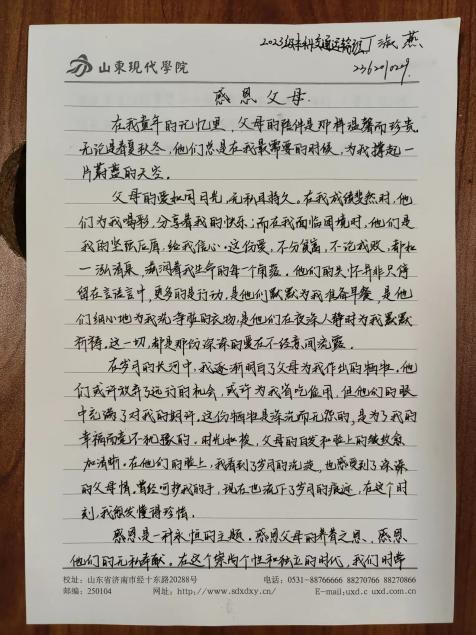 2023级本科交通运输班丁淑燕
山東現代學院
感恩父母.
在我童年的记忆里,父母的陪伴是那样温馨而珍贵.
无论是春夏秋冬,他们总是在我最需要的时候,为我撑起一
片蔚蓝的天空.
父母的爱如同日光,无私且持久。在我成绩斐然时,他
们为我喝彩,分享着我的快乐;而在我面临困境时,他们是
我的坚强后盾,给我信心.这份爱,不分贫富,不论成败,都如
一泓清泉,滋润着我生命的每一个角落。他们的关怀并非只停
留在言语当中,更多的是行动,是他们默默为我准备早餐,是他
们细心地为我洗净脏的衣物,是他们在夜深人静时为我默默
祈祷.这一切,都是那份深深的爱在不经意间流露.
在岁月的长河中,我逐渐明白了父母为我作出的牺牲.他
们或许放弃了远行的机会,或许为我省吃俭用,但他们的眼
中充满了对我的期许。这份牺牲是深沉而无怨的,是为了我的
幸福而毫不犹豫的.时光如梭,父母的白发和脸上的皱纹愈
加清晰.在他们的脸上,我看到了岁月的沉淀,也感受到了深深
的父母情.曾经呵护我的手,现在也流下了岁月的痕迹,在这个时
刻,我愈发懂得珍惜.
感恩是一种永恒的主题.感恩父母的养育之恩、感恩
他们的无私奉献.在这个崇尚个性和独立的时代,我们时常
校址:山东省济南市经十东路20288号 电话:0531-88766666 88770276 88770866
邮编:250104 网址:http://www.sdxdxy.cn/ E-mail:uxd uxd.com.cn